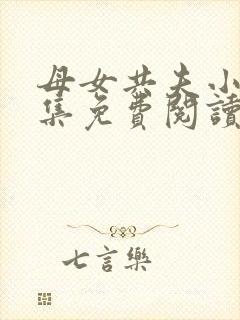 母女共夫小
集免費閱讀
七言樂